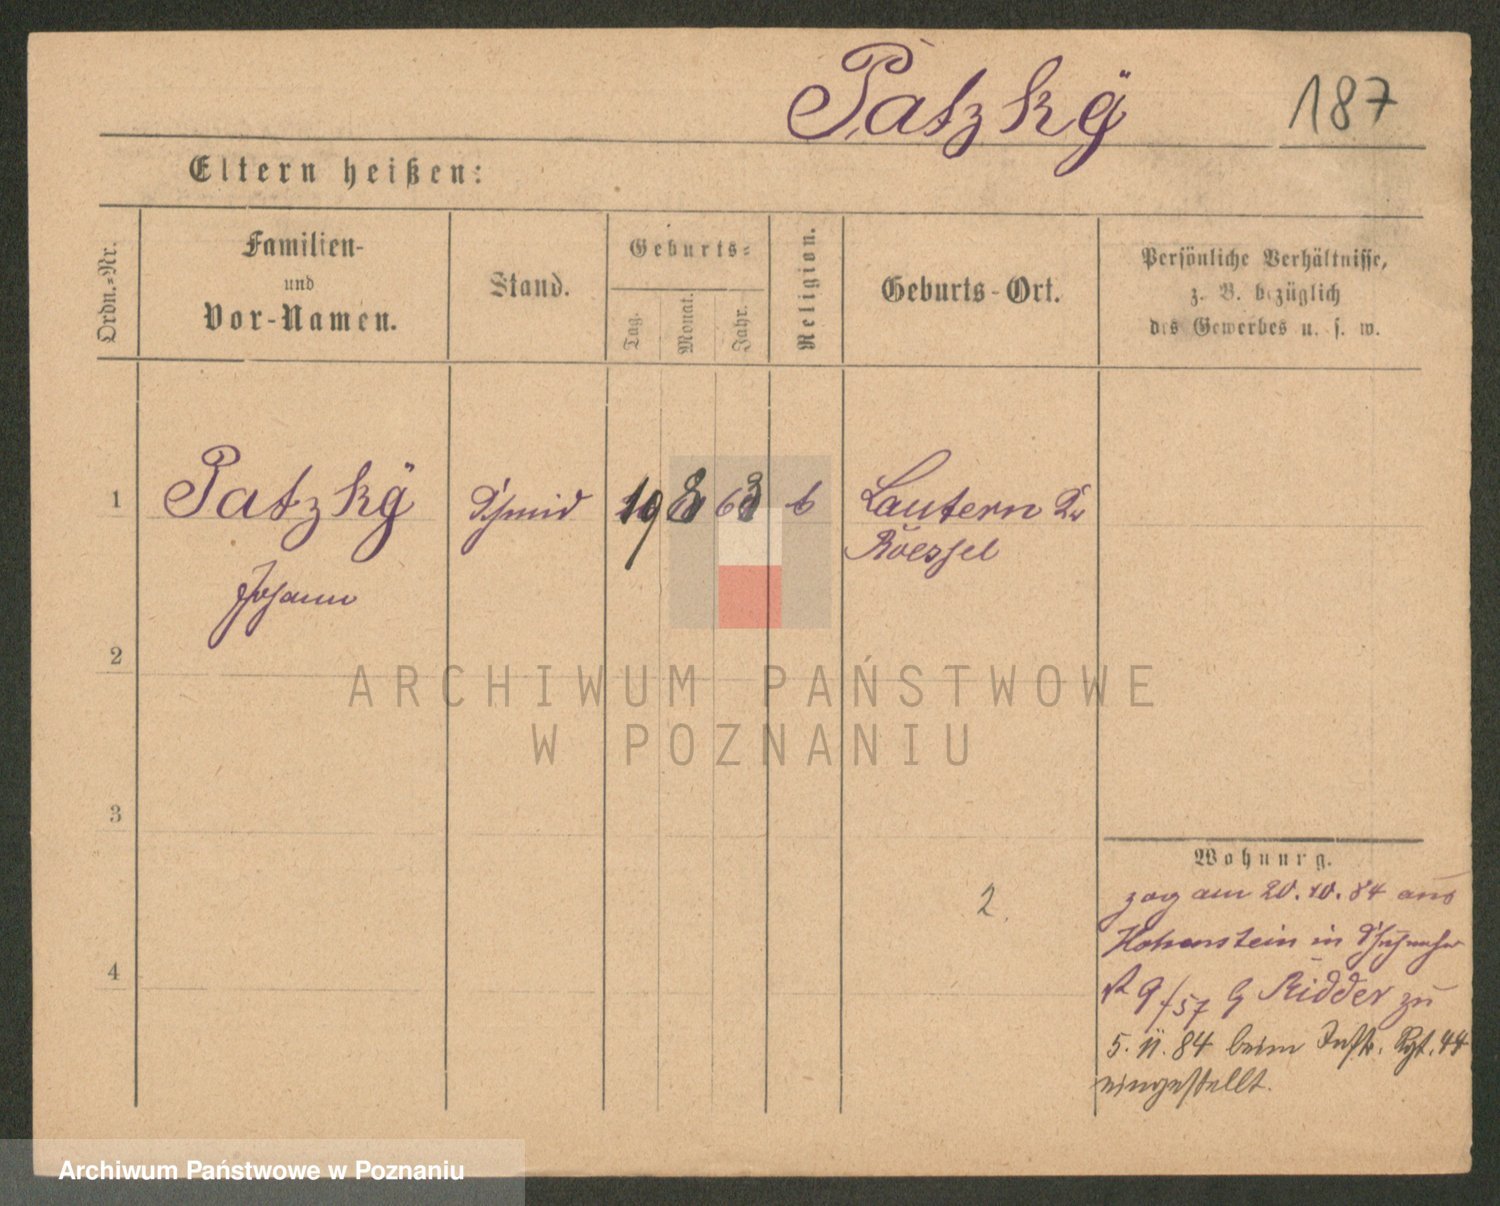 Patzkÿ
187
Eltern heißen:
Ordn.-Nr.
Familien-
und
Vor-Namen.
Stand.
Geburts-
Tag.
Monat.
Jahr.
Religion.
Geburts-Ort.
Persönliche Verhältnisse,
z. B. bezüglich
des Gewerbes u. s. w.
1
Patzkÿ
Johann
Schmid
19 8 63
Lautern Kr
Roessel
2
3
4
2.
ARCHIWUM PAŃSTWOWE
W POZNANIU
Wohnung.
zog am 20.10.84 aus
Hohenstein in
9/57 Ridder zu
5.11.84 beim Inftr. Rgt. 44
eingestellt.
Archiwum Państwowe w Poznaniu